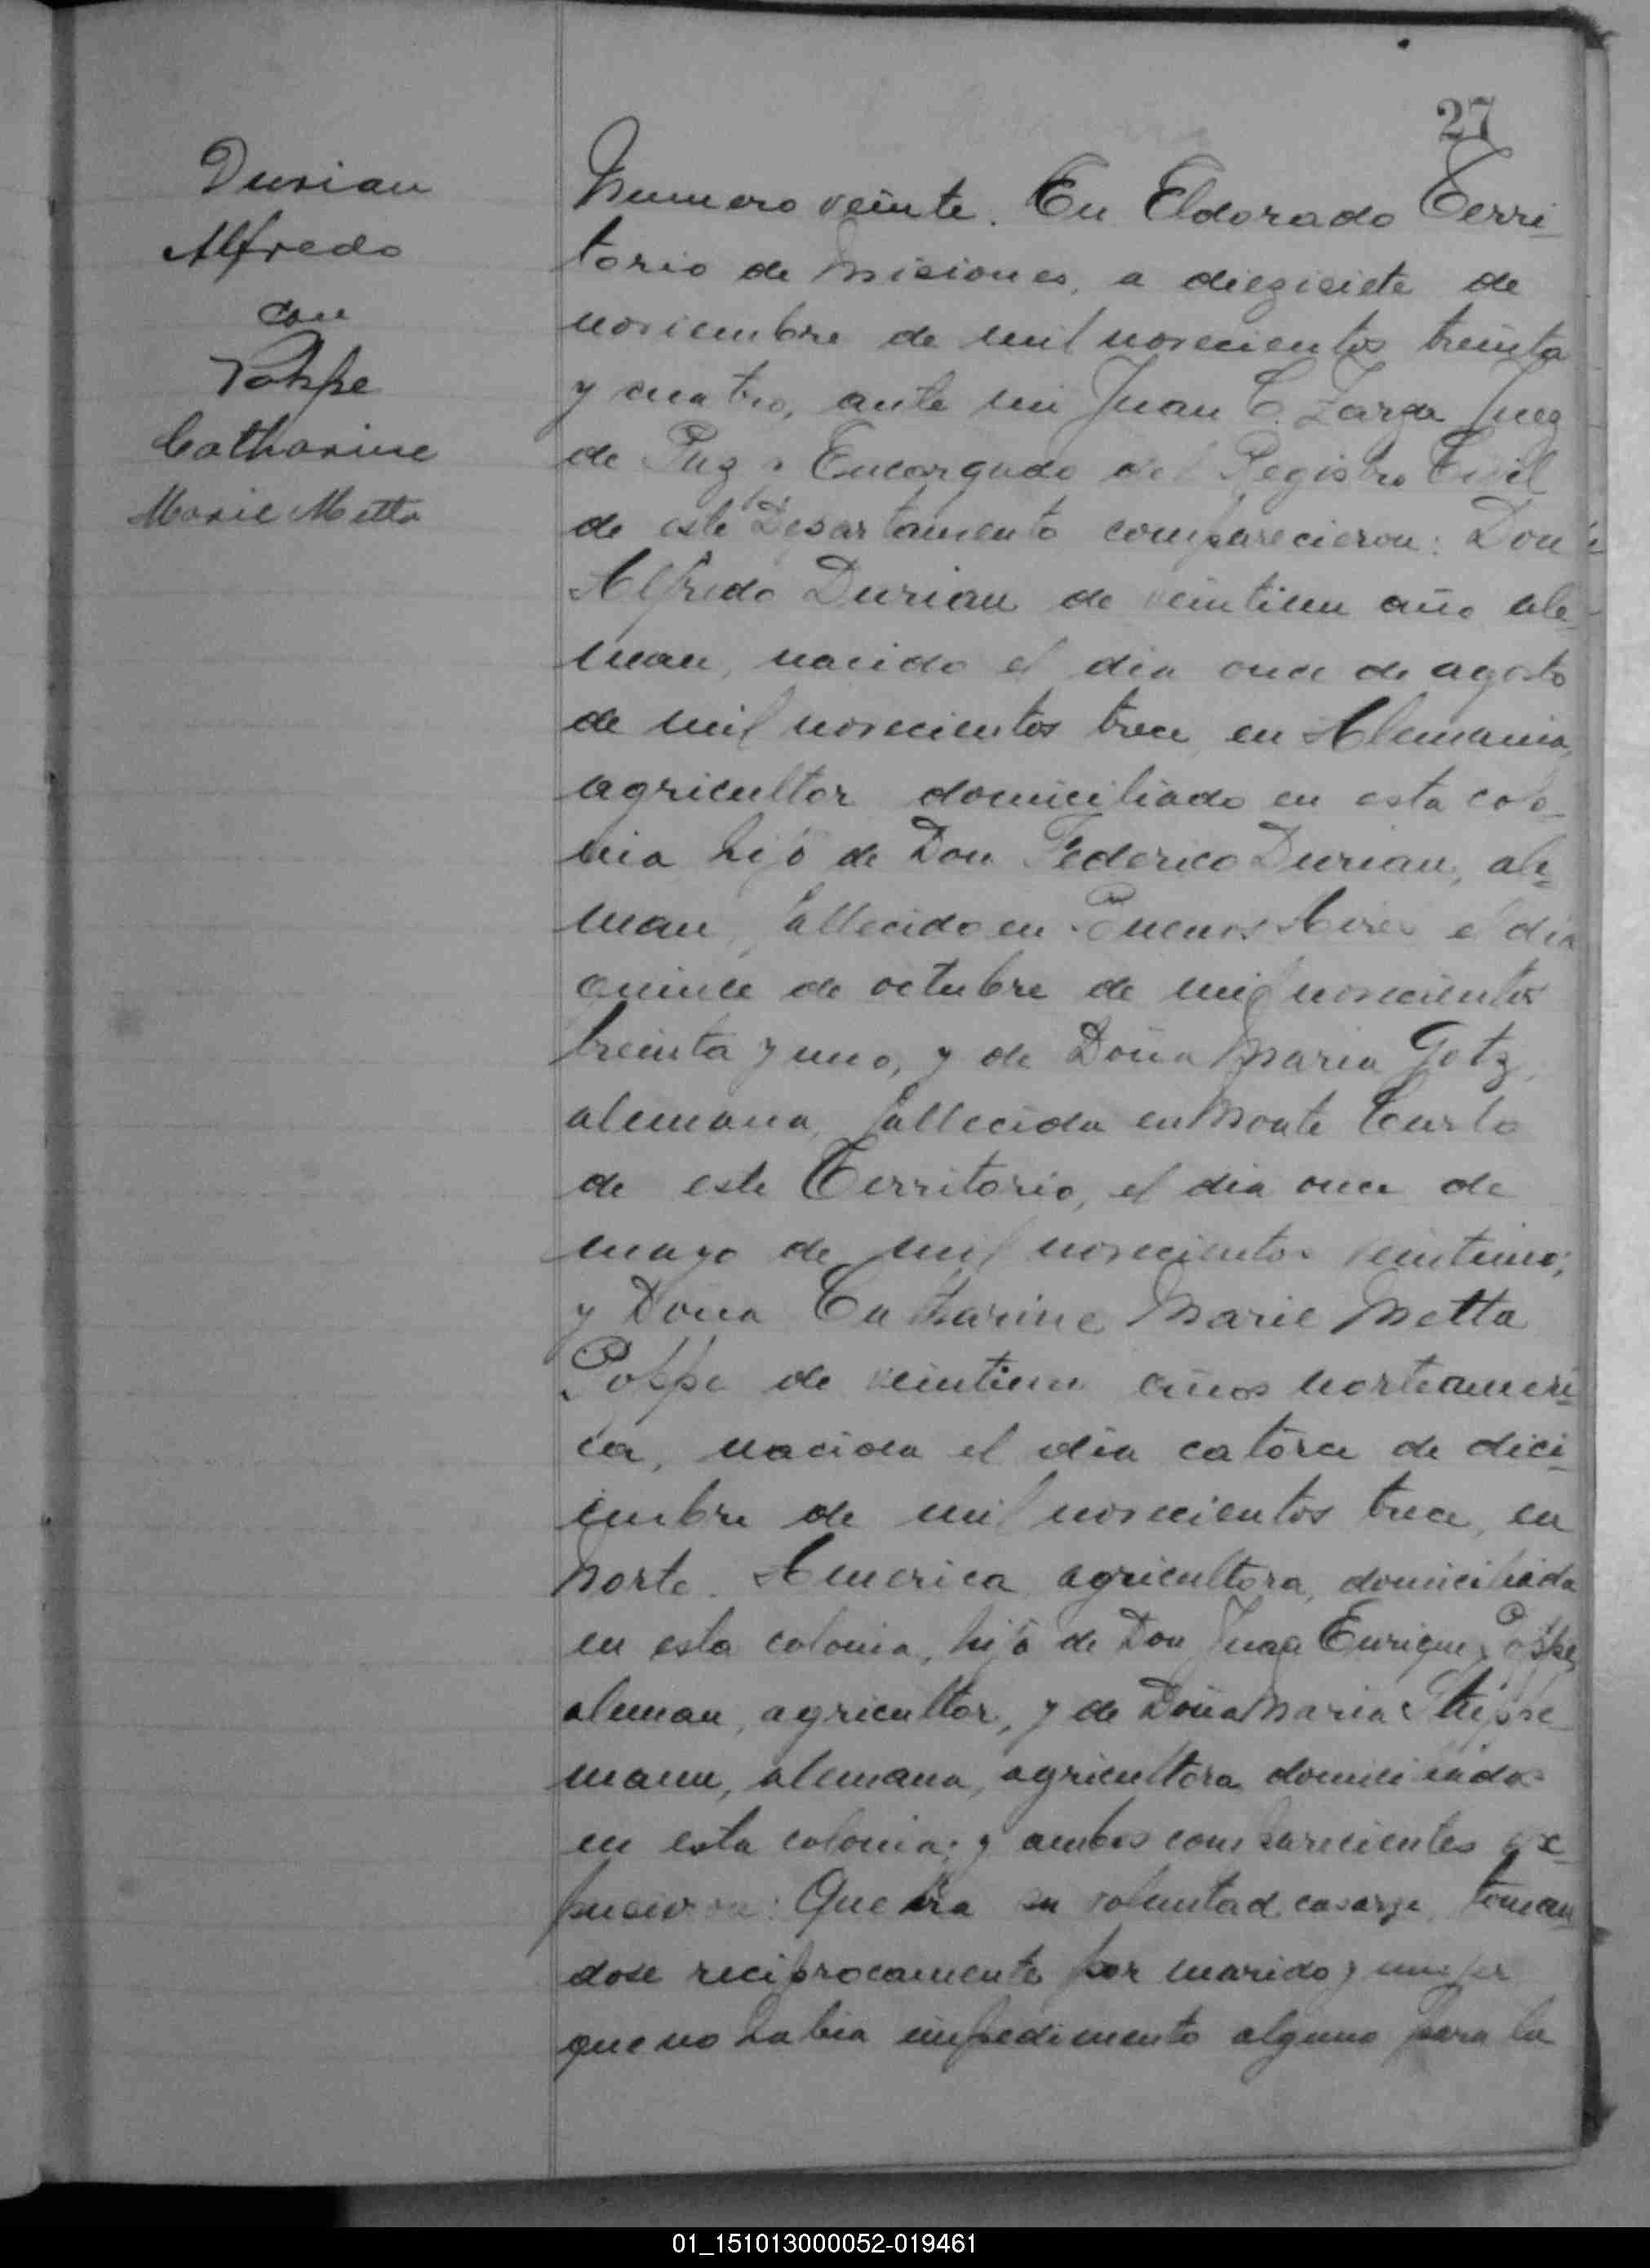 27
Durian
Alfredo
con
Poppe
Catharine
Marie Metta
Numero veinte. En Eldorado Terri-
torio de Misiones, a diezisiete de
noviembre de mil novecientos treinta
y cuatro, ante mi Juan C. Zarza Juez
de Paz y Encargado del Registro Civil
de este Departamento comparecieron: Don
Alfredo Durian de veintiun año ale-
man, nacido el dia once de agosto
de mil novecientos trece, en Alemania,
agricultor domiciliado en esta colo-
nia hijo de Don Federico Durian, ale-
man, fallecido en Buenos Aires el dia
quince de octubre de mil novecientos
treinta y uno, y de Doña Maria Gotz,
alemana, fallecida en Monte Carlo
de este Territorio, el dia once de
mayo de mil novecientos veintiuno;
y Doña Catharine Marie Metta
Poppe de veintiun años norteameri-
ca, nacida el dia catorce de dici-
embre de mil novecientos trece, en
Norte America agricultora, domiciliada
en esta colonia, hija de Don Juan Enrique Poppe,
aleman, agricultor, y de Doña Maria
mann, alemana, agricultora domiciliados
en esta colonia; y ambos comparecientes ex-
pusieron: Que era su voluntad casarse, toman
dose reciprocamente por marido y mujer
que no habia impedimento alguno para la
01_151013000052-019461